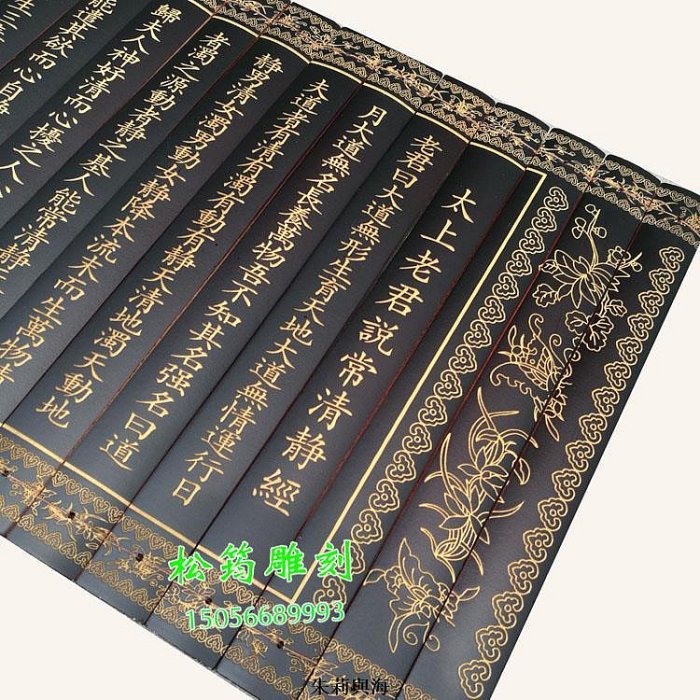 太上老君說常清靜經
老君曰大道無形生育天地大道無情運行日
月大道無名長養萬物吾不知其名强名曰道
夫道者有清有濁有動有靜天清地濁天動地
靜男清女濁男動女靜降本流末而生萬物清
者濁之源動者靜之基人能常清靜天
歸夫人神好清而心擾之人心
能遣其欲而心自
松筠雕刻
15056689993
朱莉與海